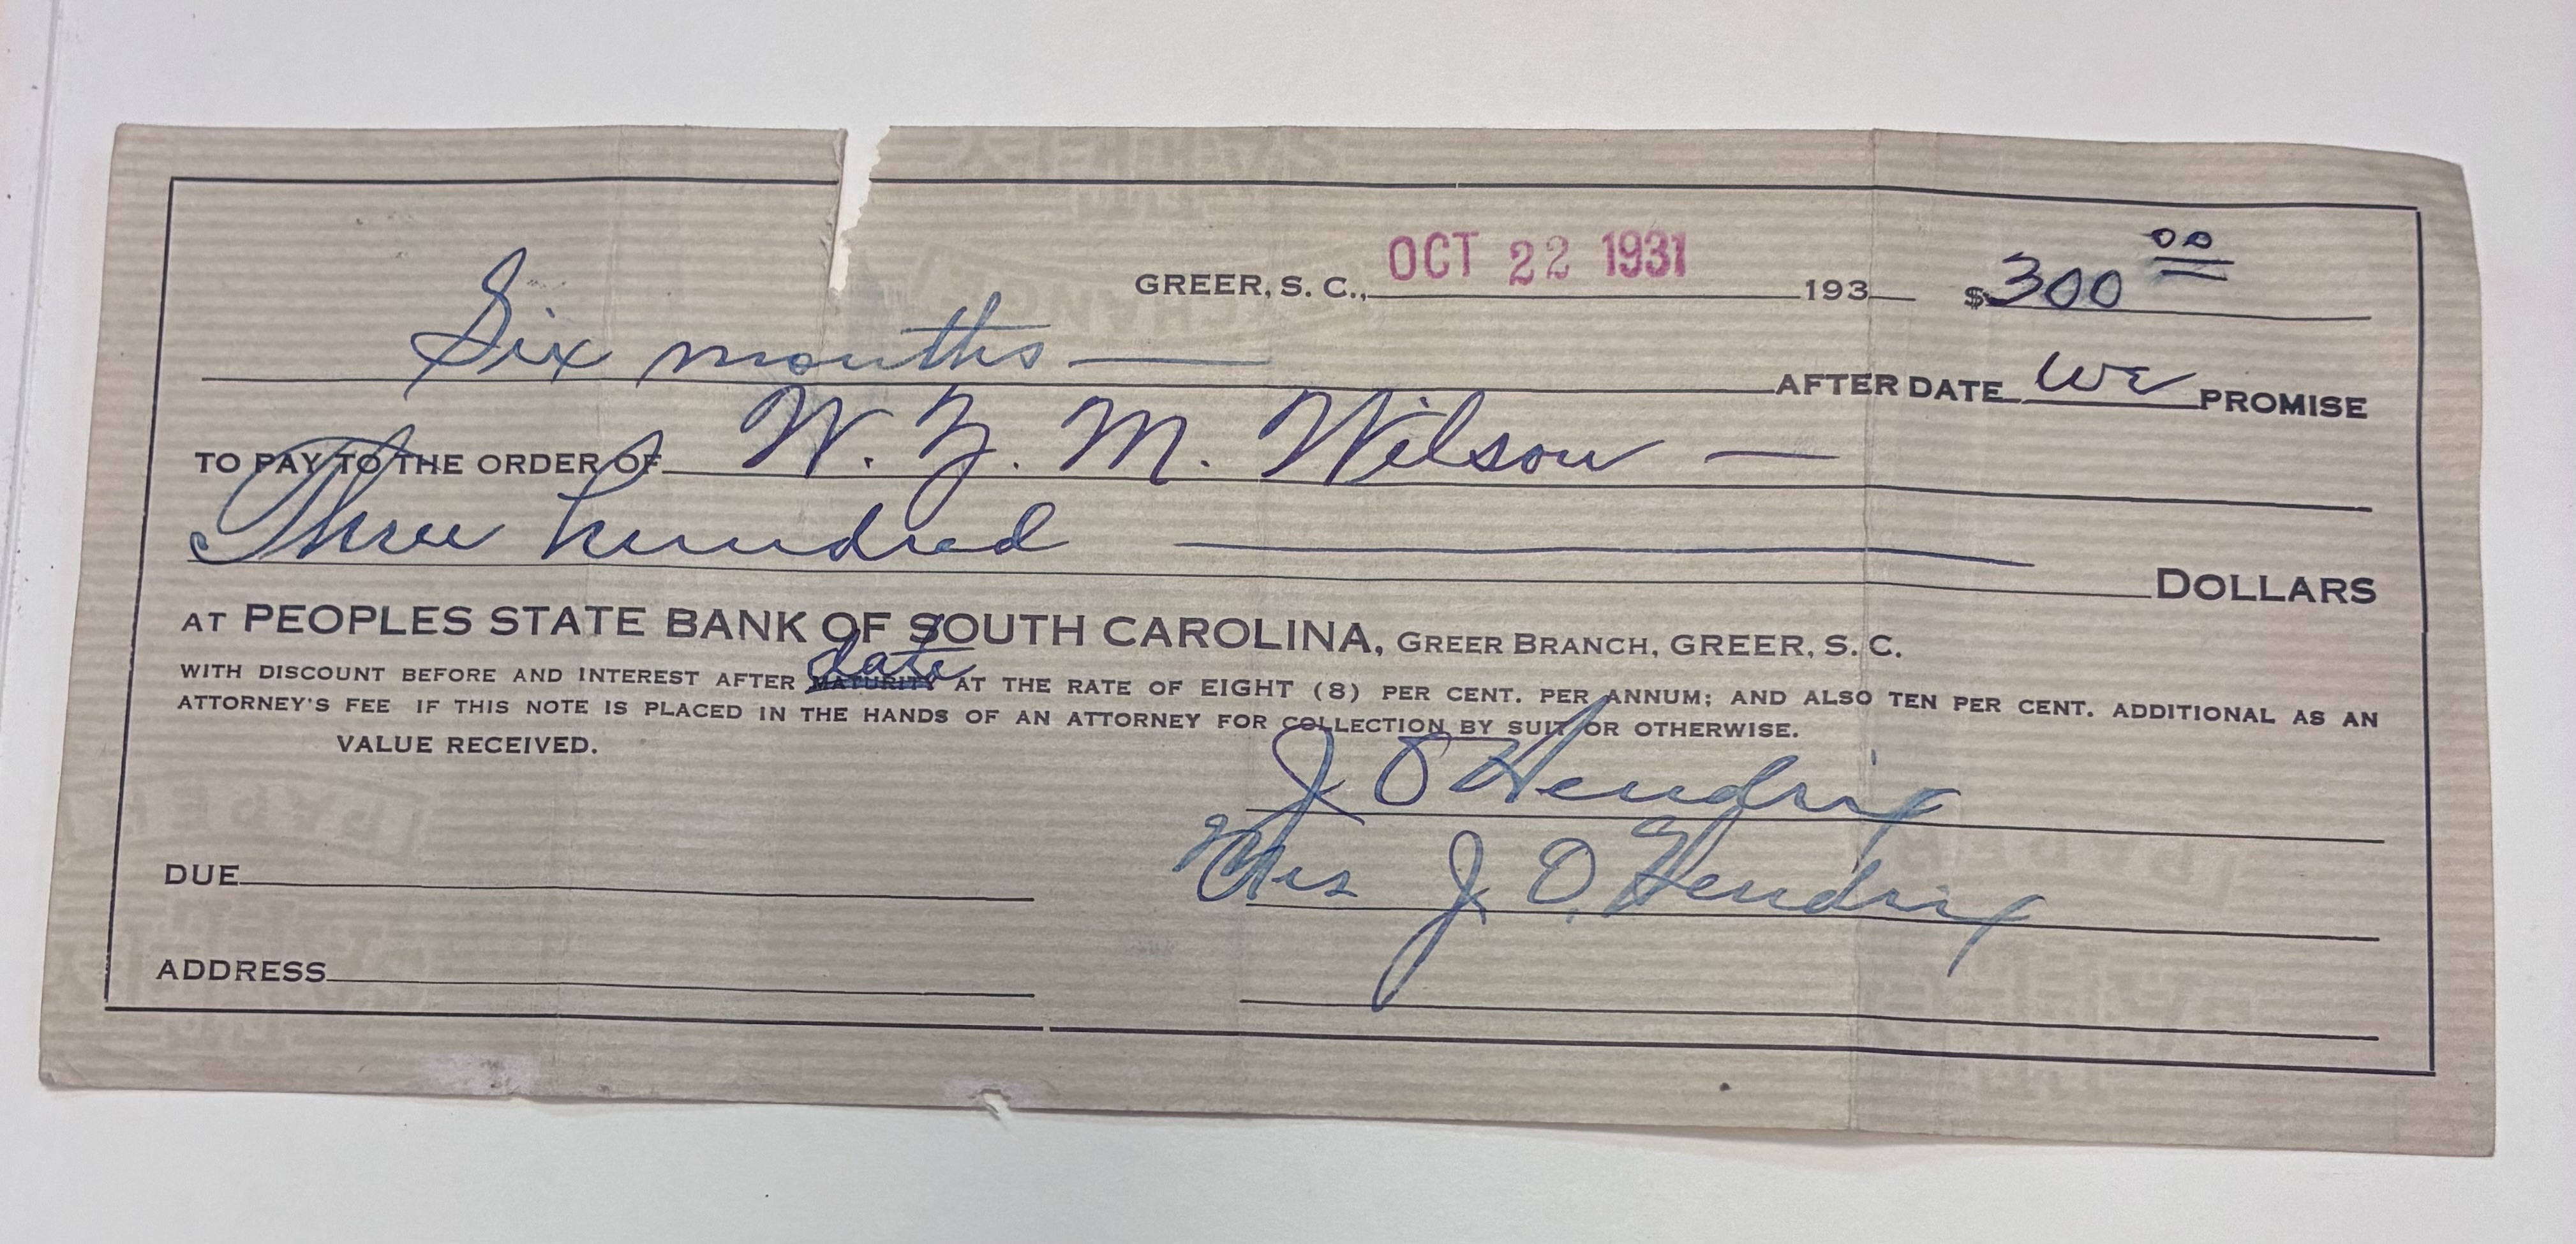 GREER, S. C., OCT 22 1931 193 $300 00
Six months — AFTER DATE We PROMISE
TO PAY TO THE ORDER OF W. Z. M. Wilson —
Three hundred — DOLLARS
AT PEOPLES STATE BANK OF SOUTH CAROLINA, GREER BRANCH, GREER, S. C.
date
WITH DISCOUNT BEFORE AND INTEREST AFTER MATURITY AT THE RATE OF EIGHT (8) PER CENT. PER ANNUM; AND ALSO TEN PER CENT. ADDITIONAL AS AN
ATTORNEY'S FEE IF THIS NOTE IS PLACED IN THE HANDS OF AN ATTORNEY FOR COLLECTION BY SUIT OR OTHERWISE.
VALUE RECEIVED.
J O Hendrix
DUE
Mrs J. O. Hendrix
ADDRESS